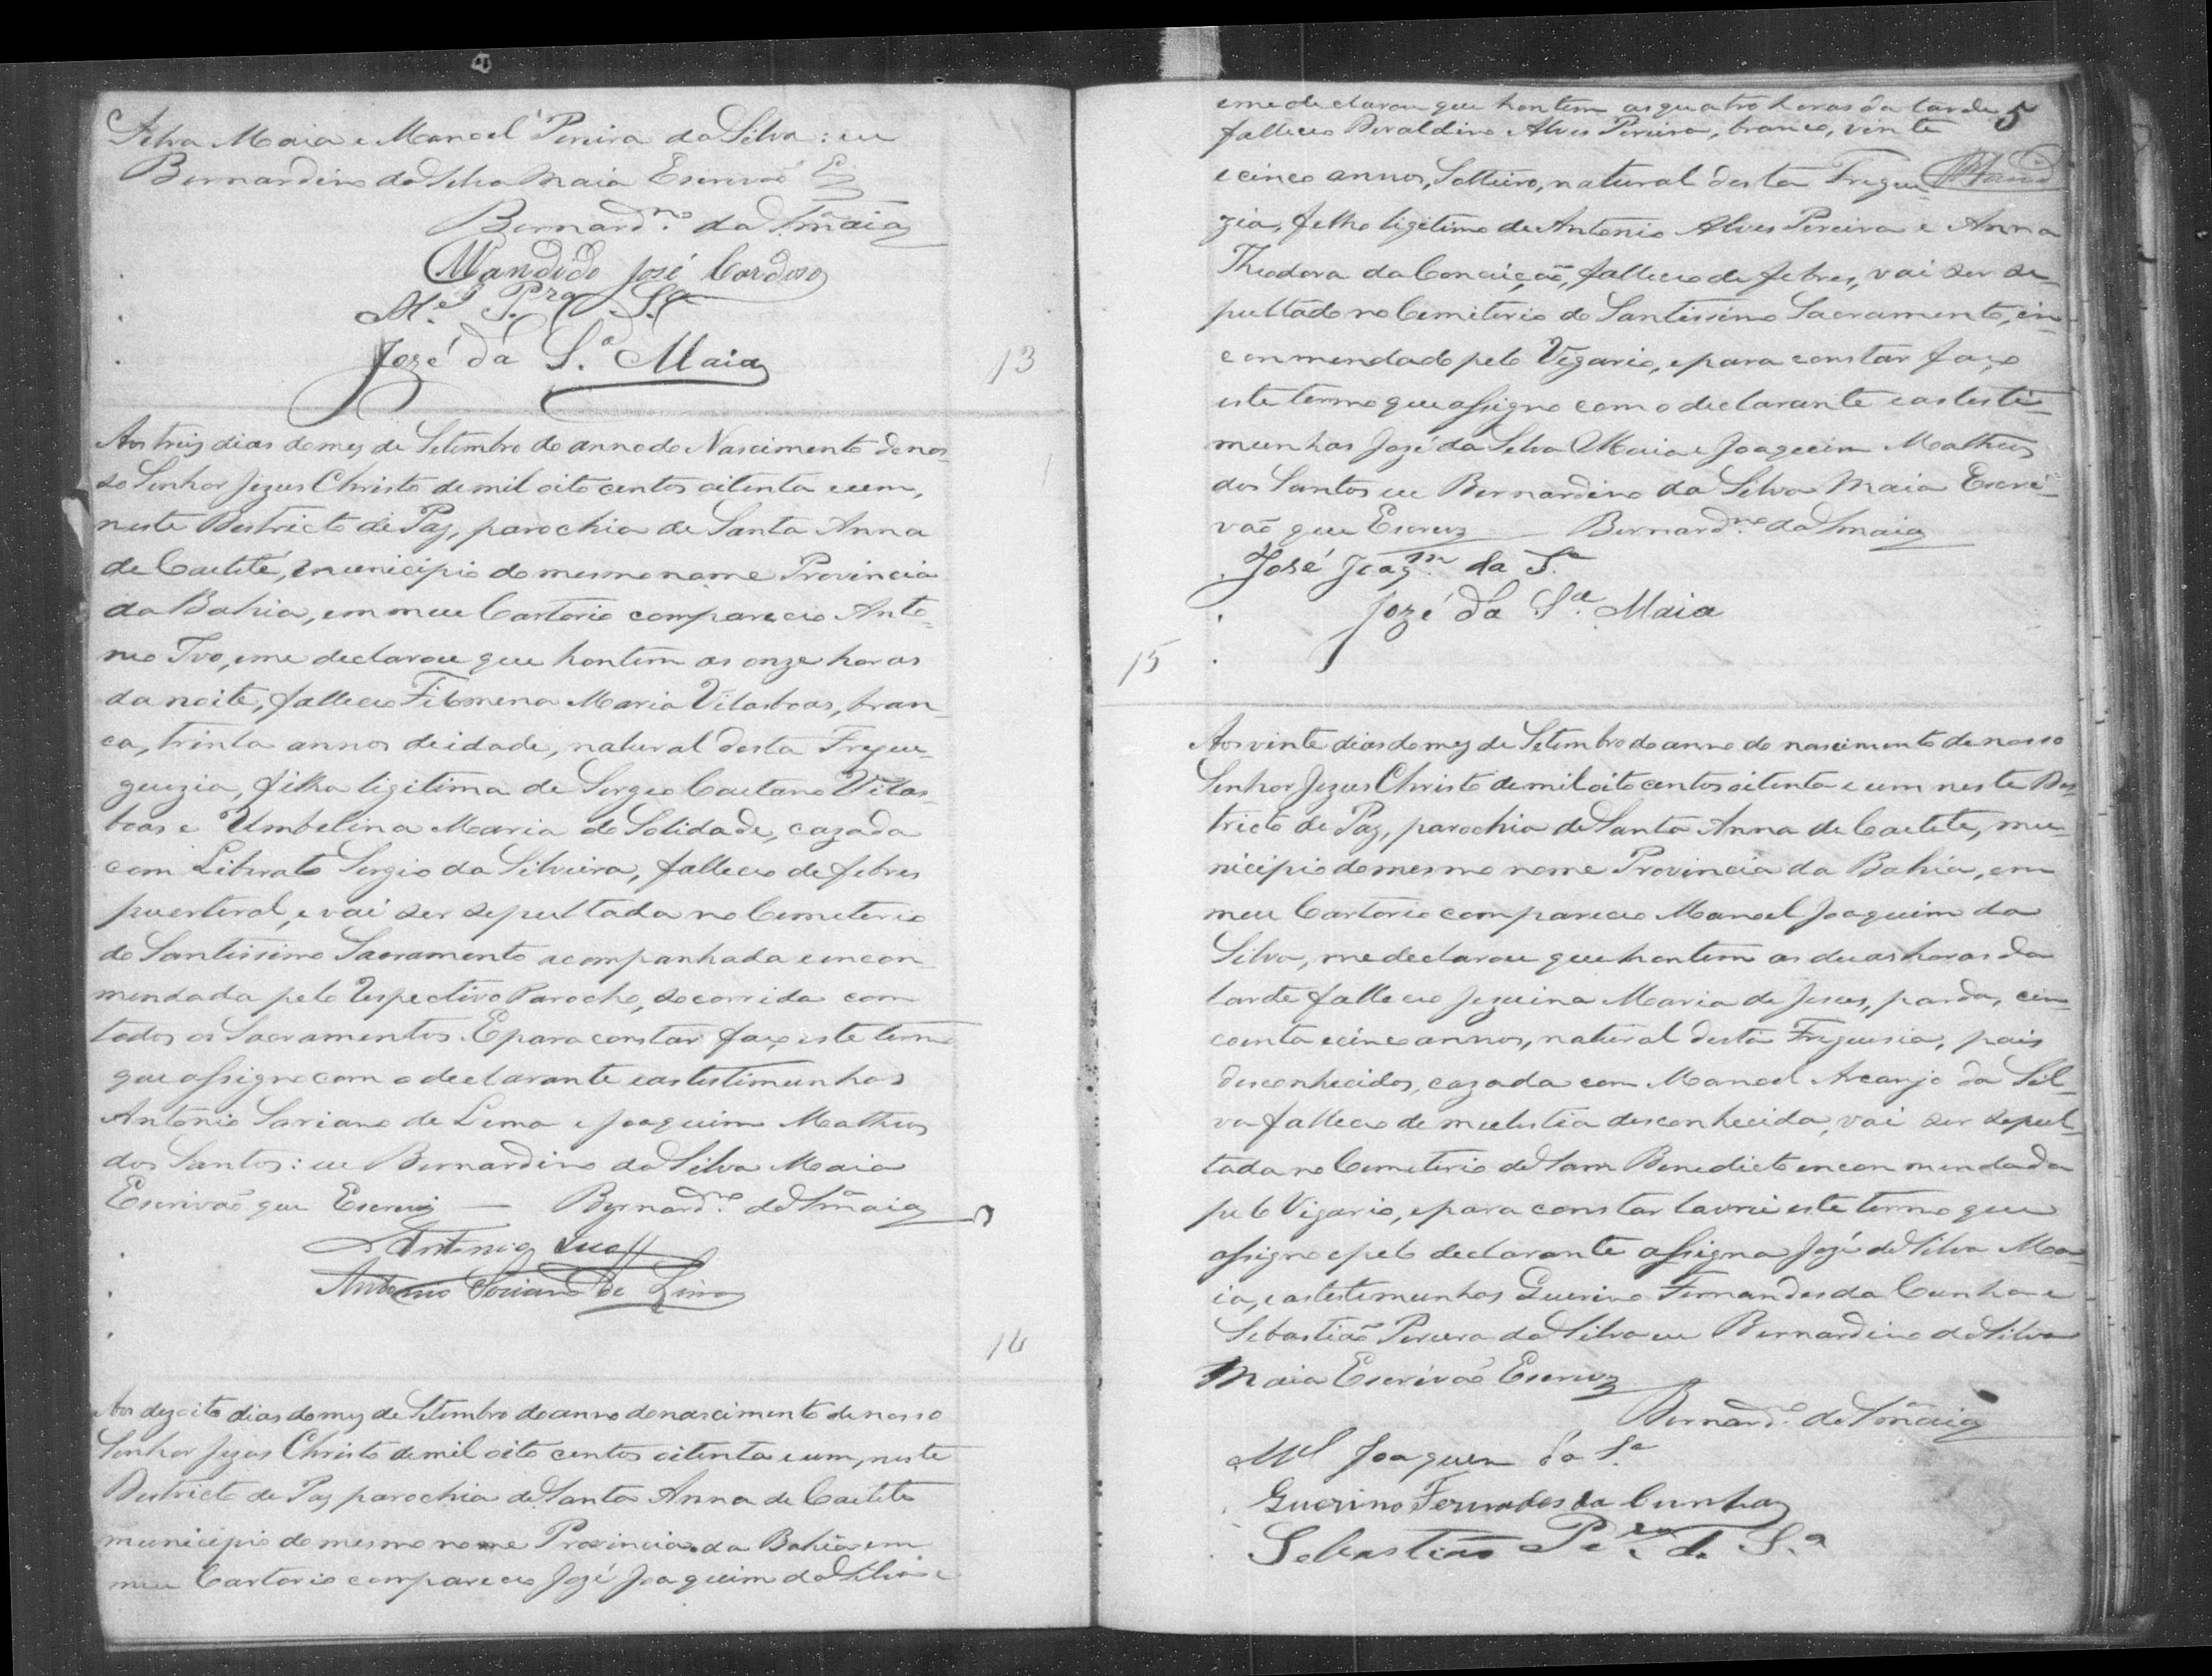 Silva Maia e Manoel Pereira da Silva: eu
Bernardino da Silva Maia Escrivaõ
Bernard.no da S. Maia
Candido José Cardoso
M.el P.ra S.a
Jozé da S.a Maia
13
Aos treis dias do mez de Setembro do anno do Nascimento de nos-
so Senhor Jezus Christo de mil oito centos oitenta e um,
neste Destricto de Paz, parochia de Santa Anna
de Caetité, municipio do mesmo nome Provincia
da Bahia, em meu Cartorio compareceo Anto-
nio Ivo, e me declarou que hontem as onze horas
da noite, falleceo Filomena Maria Vilasboas, bran-
ca, trinta annos de idade, natural desta Fregue-
guezia, filha ligitima de Sergio Caetano Vilas-
boas e Umbelina Maria da Solidade, cazada
com Liberato Sergio da Silveira, falleceo de febres
puerteral, e vai ser sepultada no Cemeterio
do Santissimo Sacramento acompanhada e encon-
mendada pelo Respectivo Parocho, socorrida com
todos os Sacramentos. E para constar faço este termo
que assigno com o declarante e as testimunhas
Antonio Soriano de Lima e Joaquim Matheus
dos Santos: eu Bernardino da Silva Maia
Escrivaõ que Escrevi — Bernard.no da S. Maia
Antonio
Antonio Soriano de Lima
14
Aos dezoito dias do mez de Setembro do anno do nascimento de nosso
Senhor Jezus Christo de mil oito centos oitenta e um, neste
Destricto de Paz parochia de Santa Anna de Caetite
municipio do mesmo nome Provincia da Bahia em
meu Cartorio compareceo Jozé Joaquim da Silva e
5
e me declarou que hontem as quatro horas da tarde
falleceo Beraldino Alves Pereira, branco, vinte
e cinco annos, Solteiro, natural desta Fregue-
Maia
zia, filho ligitimo de Antonio Alves Pereira e Anna
Theodora da Conceição, falleceo de febres, vai ser se-
pultado no Cemiterio do Santissimo Sacramento, en-
conmendado pelo Vigario, e para constar faço
este termo que assigno com o declarante e as testi-
munhas Jozé da Silva Maia e Joaquim Matheus
dos Santos eu Bernardino da Silva Maia Escri-
vaõ que Escrevi Bernard.no da S. Maia
José Joaq.m da S.a
Jozé da S.a Maia
15
Aos vinte dias do mez de Setembro do anno do nascimento de nosso
Senhor Jezus Christo de mil oito centos oitenta e um neste Des-
tricto de Paz, parochia de Santa Anna de Caetite, mu-
nicipio do mesmo nome Provincia da Bahia, em
meu Cartorio compareceo Manoel Joaquim da
Silva, me declarou que hontem as duas horas da
tarde falleceo Jezuina Maria de Jesus, parda, cin-
coenta e cinco annos, natural desta Freguesia, pais
desconhecidos, cazada com Manoel Arcanjo da Sil-
va falleceo de mulestia desconhecida, vai ser sepul-
tada no Cemeterio de Sam Benedicto enconmendada
pelo Vigario, e para constar lavrei este termo que
assigno e pelo declarante assigna Jozé da Silva Ma-
ia, e as testimunhas Guerino Fernandes da Cunha e
Sebastiaõ Pereira da Silva eu Bernardino da Silva
Maia Escrivaõ Escrevi
Bernard.no da S. Maia
M.el Joaquim da S.a
Guerino Fernandes da Cunha
Sebastiaõ Per.ra da S.a